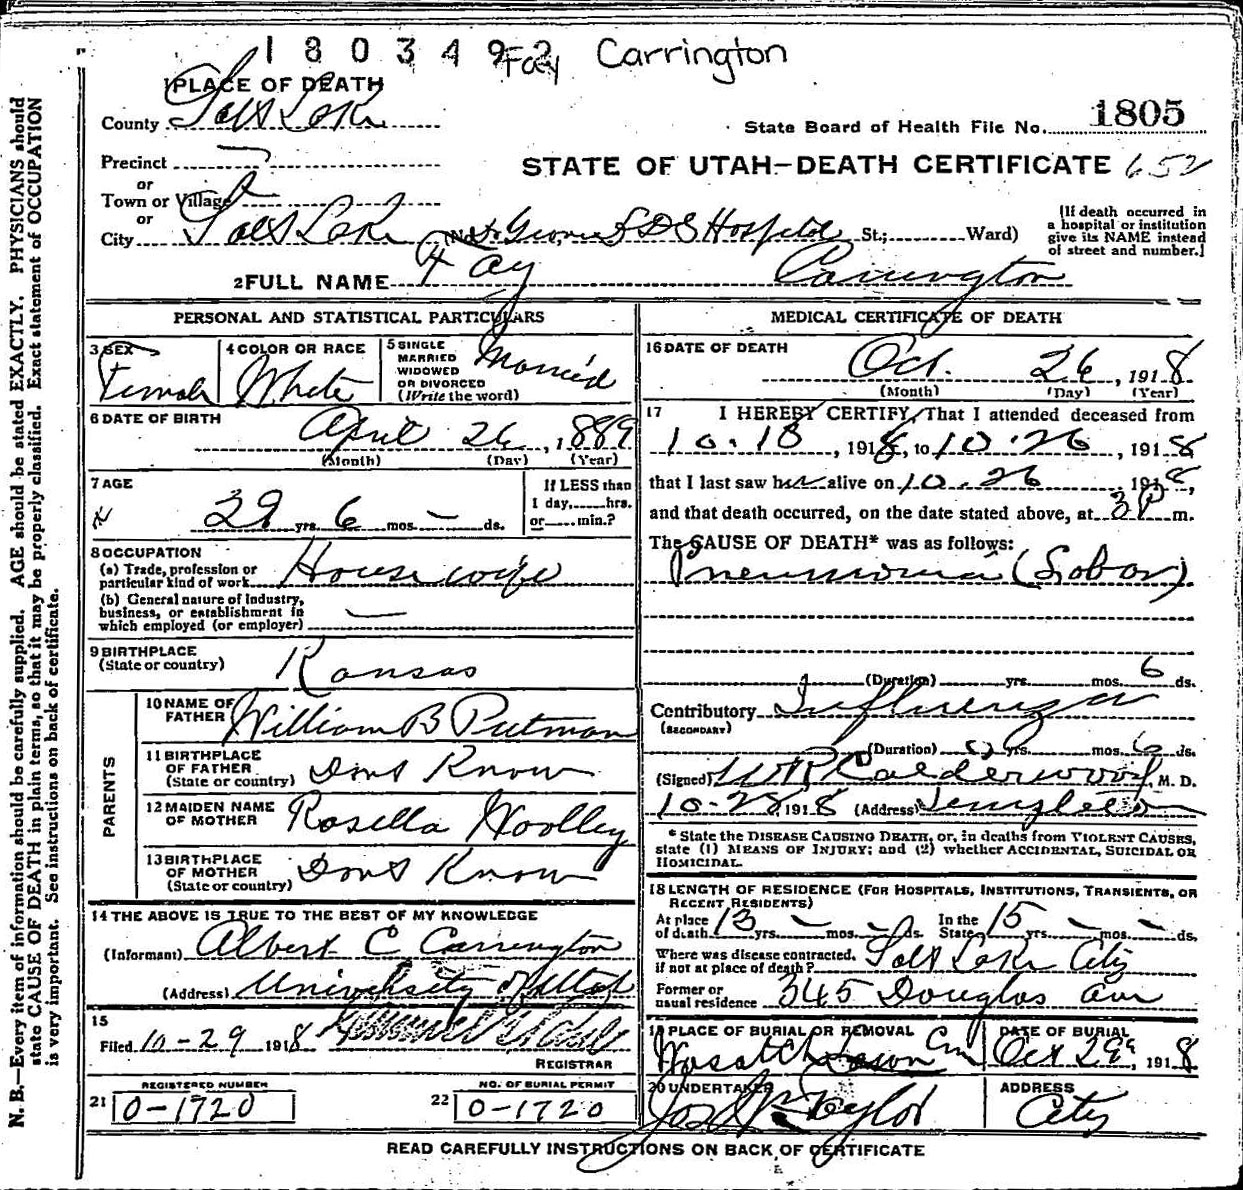 1803492 Fay Carrington
1 PLACE OF DEATH
County Salt Lake
State Board of Health File No. 1805
Precinct
STATE OF UTAH—DEATH CERTIFICATE 652
or
Town or Village
or
City Salt Lake (No. Dr Groves LDS Hospital St.; Ward)
[If death occurred in a hospital or institution give its NAME instead of street and number.]
2 FULL NAME Fay Carrington
PERSONAL AND STATISTICAL PARTICULARS
3 SEX Female
4 COLOR OR RACE White
5 SINGLE MARRIED WIDOWED OR DIVORCED (Write the word) Married
6 DATE OF BIRTH April 26, 1889
(Month) (Day) (Year)
7 AGE
29 yrs. 6 mos. — ds.
If LESS than 1 day,.....hrs. or.....min.?
8 OCCUPATION
(a) Trade, profession or particular kind of work Housewife
(b) General nature of industry, business, or establishment in which employed (or employer) —
9 BIRTHPLACE (State or country) Kansas
PARENTS
10 NAME OF FATHER William B Putman
11 BIRTHPLACE OF FATHER (State or country) Dont Know
12 MAIDEN NAME OF MOTHER Rosella Woolley
13 BIRTHPLACE OF MOTHER (State or country) Dont Know
14 THE ABOVE IS TRUE TO THE BEST OF MY KNOWLEDGE
(Informant) Albert C Carrington
(Address) University of Utah
15
Filed 10-29 1918
REGISTRAR
REGISTERED NUMBER
21 0-1720
NO. OF BURIAL PERMIT
22 0-1720
MEDICAL CERTIFICATE OF DEATH
16 DATE OF DEATH
Oct. 26, 1918
(Month) (Day) (Year)
17 I HEREBY CERTIFY, That I attended deceased from
10.18, 1918, to 10.26, 1918
that I last saw her alive on 10.26 1918,
and that death occurred, on the date stated above, at 3 P m.
The CAUSE OF DEATH* was as follows:
Pneumonia (Lobar)
(Duration) yrs. mos. 6 ds.
Contributory Influenza
(SECONDARY)
(Duration) yrs. mos. 6 ds.
(Signed) W R Calderwood, M. D.
10-28 1918 (Address) Templeton
* State the DISEASE CAUSING DEATH, or, in deaths from VIOLENT CAUSES, state (1) MEANS OF INJURY; and (2) whether ACCIDENTAL, SUICIDAL OR HOMICIDAL.
18 LENGTH OF RESIDENCE (FOR HOSPITALS, INSTITUTIONS, TRANSIENTS, OR RECENT RESIDENTS)
At place of death 13 yrs. — mos. — ds. In the State 15 yrs. — mos. — ds.
Where was disease contracted, if not at place of death? Salt Lake City
Former or usual residence 345 Douglas Ave
19 PLACE OF BURIAL OR REMOVAL Wasatch Lawn Cem
DATE OF BURIAL Oct 29, 1918
20 UNDERTAKER Jos Taylor
ADDRESS City
READ CAREFULLY INSTRUCTIONS ON BACK OF CERTIFICATE
N. B.—Every item of information should be carefully supplied. AGE should be stated EXACTLY. PHYSICIANS should
state CAUSE OF DEATH in plain terms, so that it may be properly classified. Exact statement of OCCUPATION
is very important. See instructions on back of certificate.